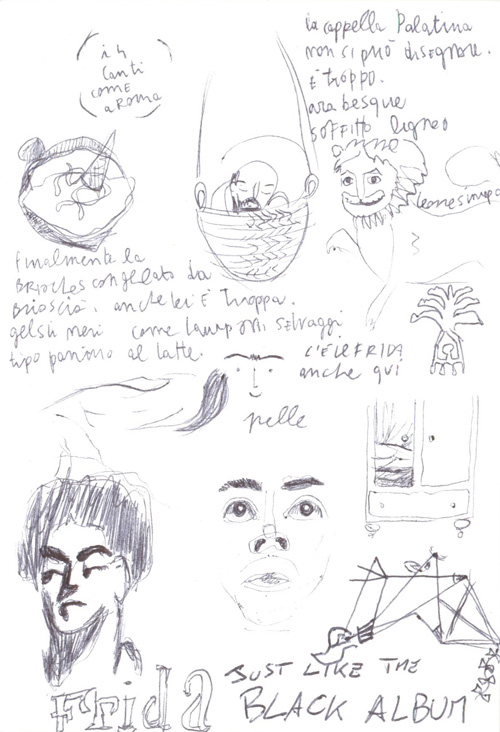 i 4
canti
come
a Roma
la cappella Palatina
non si può disegnare.
È troppo.
arabesque
soffitto ligneo
leone
finalmente la
Brioches con gelato da
Brioscià. anche lei È troppa.
gelsi neri come lamponi selvaggi
tipo panino al latte.
c'È lE FRIDA
anche qui
pelle
Frida
JUST LIKE THE
BLACK ALBUM